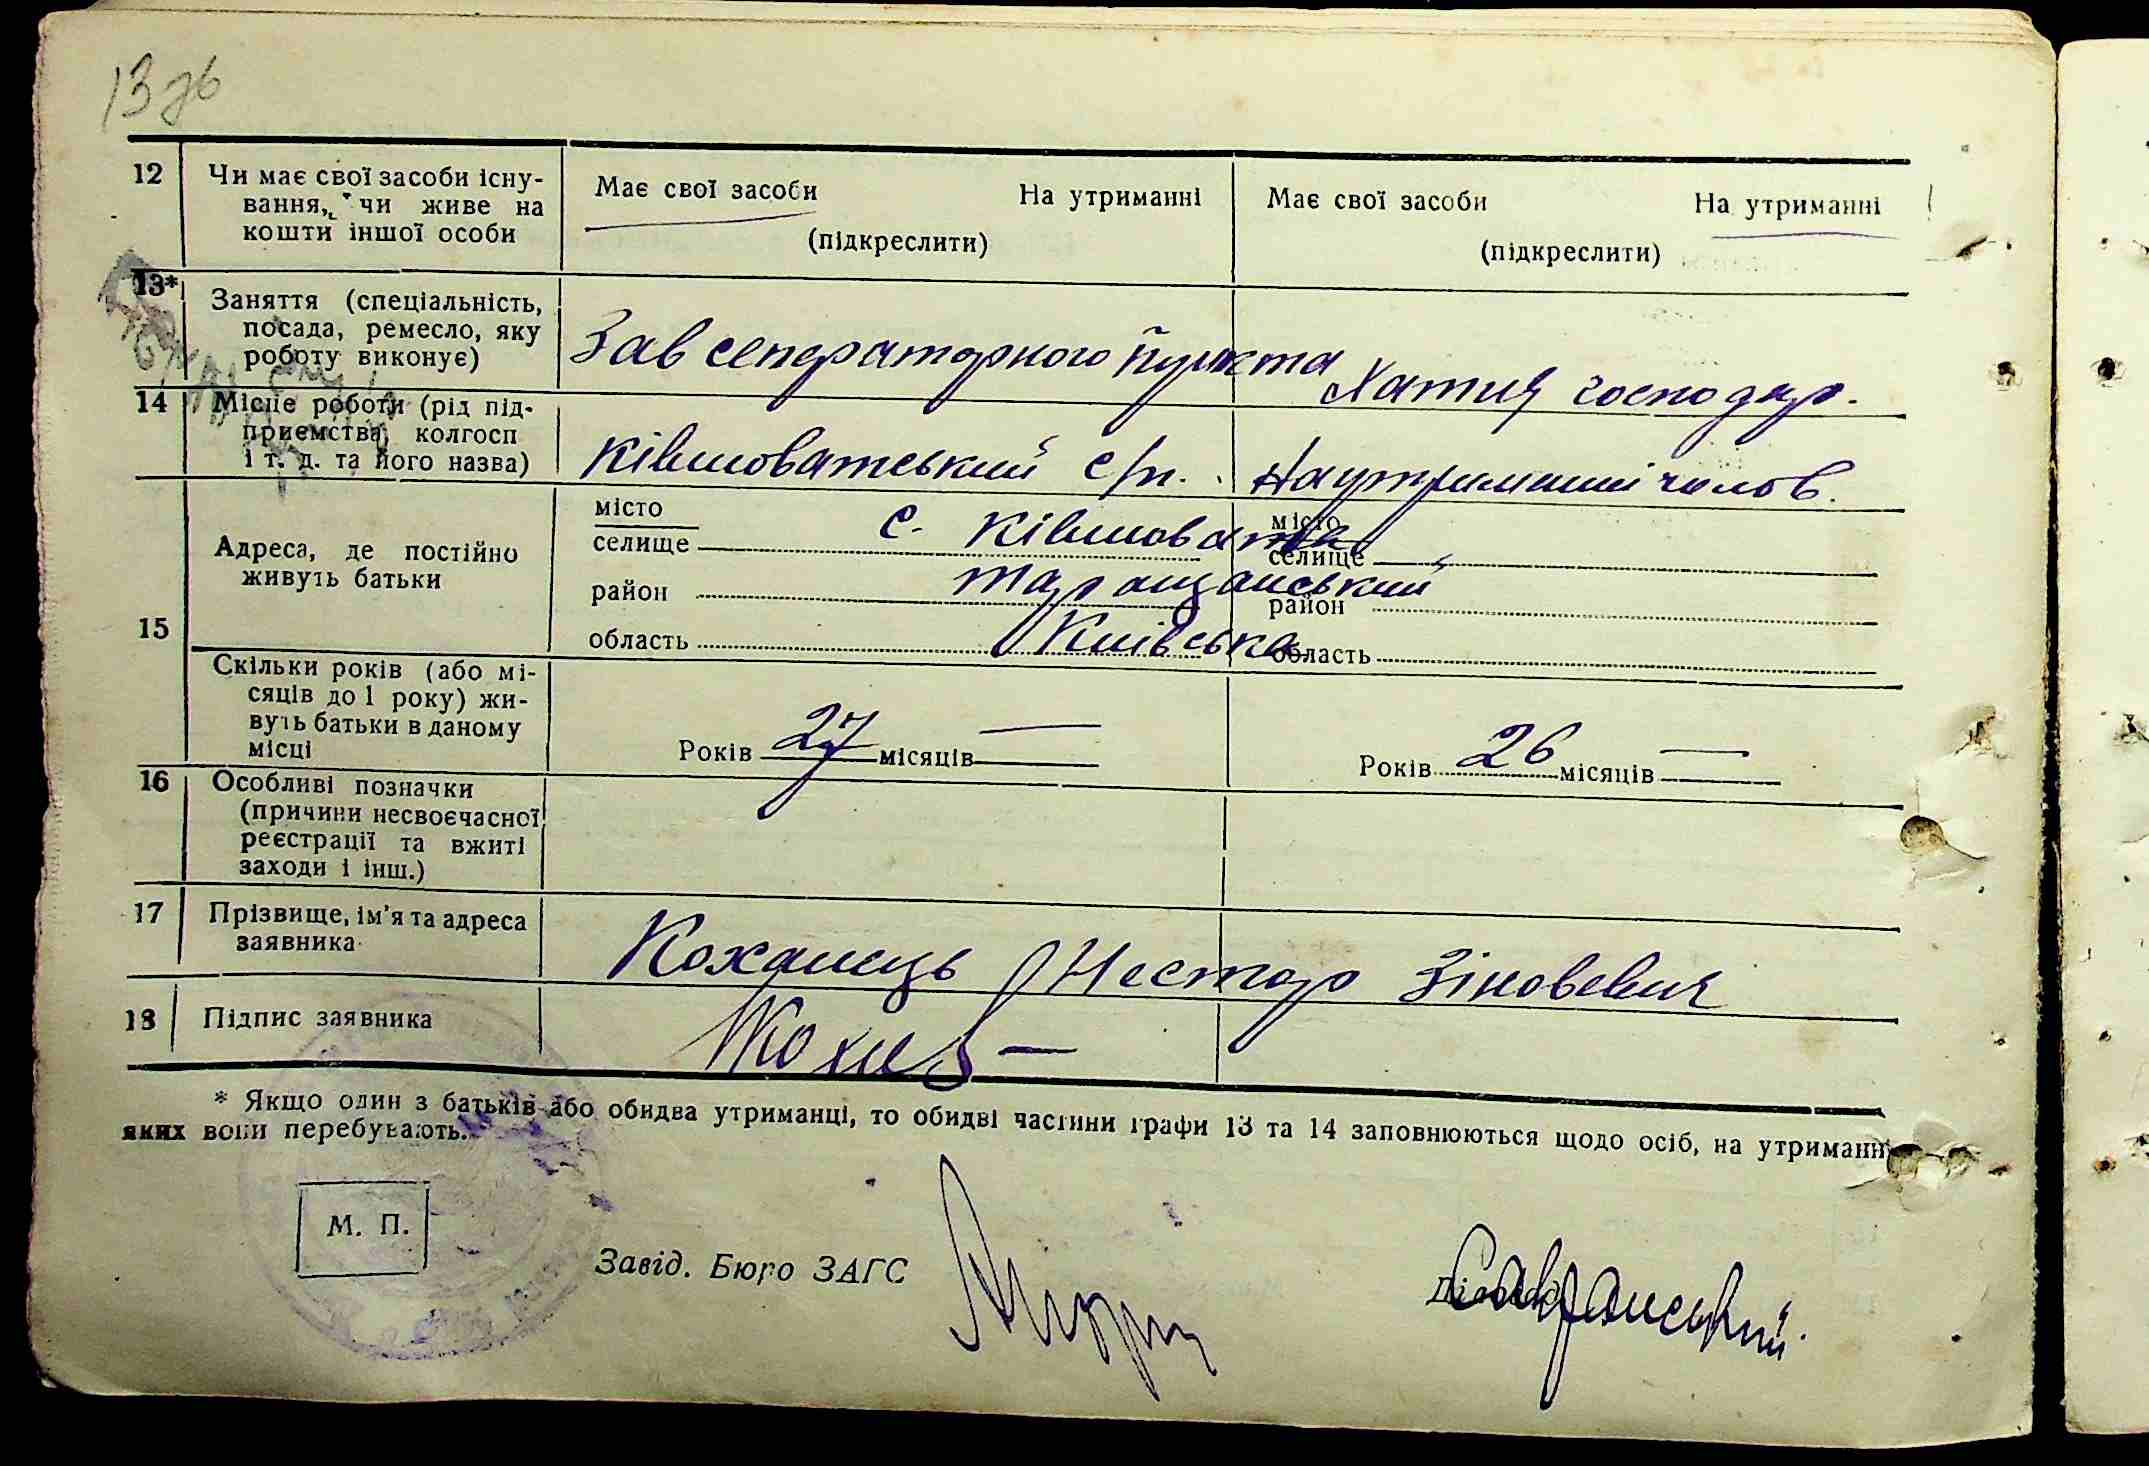 13 зв
12 Чи має свої засоби існу- Має свої засоби На утриманні Має свої засоби На утриманні
вання, чи живе на
кошти іншої особи (підкреслити) (підкреслити)
13* Заняття (спеціальність,
посада, ремесло, яку
роботу виконує) Зав сепораторного пункта Хатня господар.
14 Місце роботи (рід під-
приємства, колгосп
і т. д. та його назва) Ківшоватський с/п. На утриманні чолов.
15 Адреса, де постійно
живуть батьки
місто
селище с. Ківшовата місто
селище
район Таращанський район
область Київська область
Скільки років (або мі-
сяців до 1 року) жи-
вуть батьки в даному
місці Років 27 місяців — Років 26 місяців —
16 Особливі позначки
(причини несвоєчасної
реєстрації та вжиті
заходи і інш.)
17 Прізвище, ім'я та адреса
заявника Коханець Нестор Зіновевич
18 Підпис заявника
* Якщо один з батьків або обидва утриманці, то обидві частини графи 13 та 14 заповнюються щодо осіб, на утриманні
яких вони перебувають.
М. П.
Завід. Бюро ЗАГС Савранський